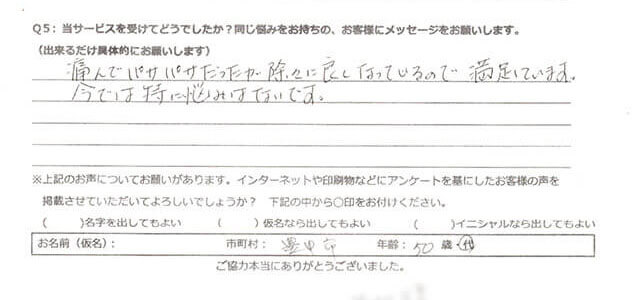 Q5：当サービスを受けてどうでしたか？同じ悩みをお持ちの、お客様にメッセージをお願いします。
（出来るだけ具体的にお願いします）
痛んでパサパサだったが除々に良くなっているので満足しています。
今では特に悩みはないです。
※上記のお声についてお願いがあります。インターネットや印刷物などにアンケートを基にしたお客様の声を
掲載させていただいてよろしいでしょうか？　下記の中から○印をお付けください。
(　　　)名字を出してもよい　　(　　　)仮名なら出してもよい　　(　　　)イニシャルなら出してもよい
お名前（仮名）：　　市町村：豊田市　　年齢：50 歳・代
ご協力本当にありがとうございました。